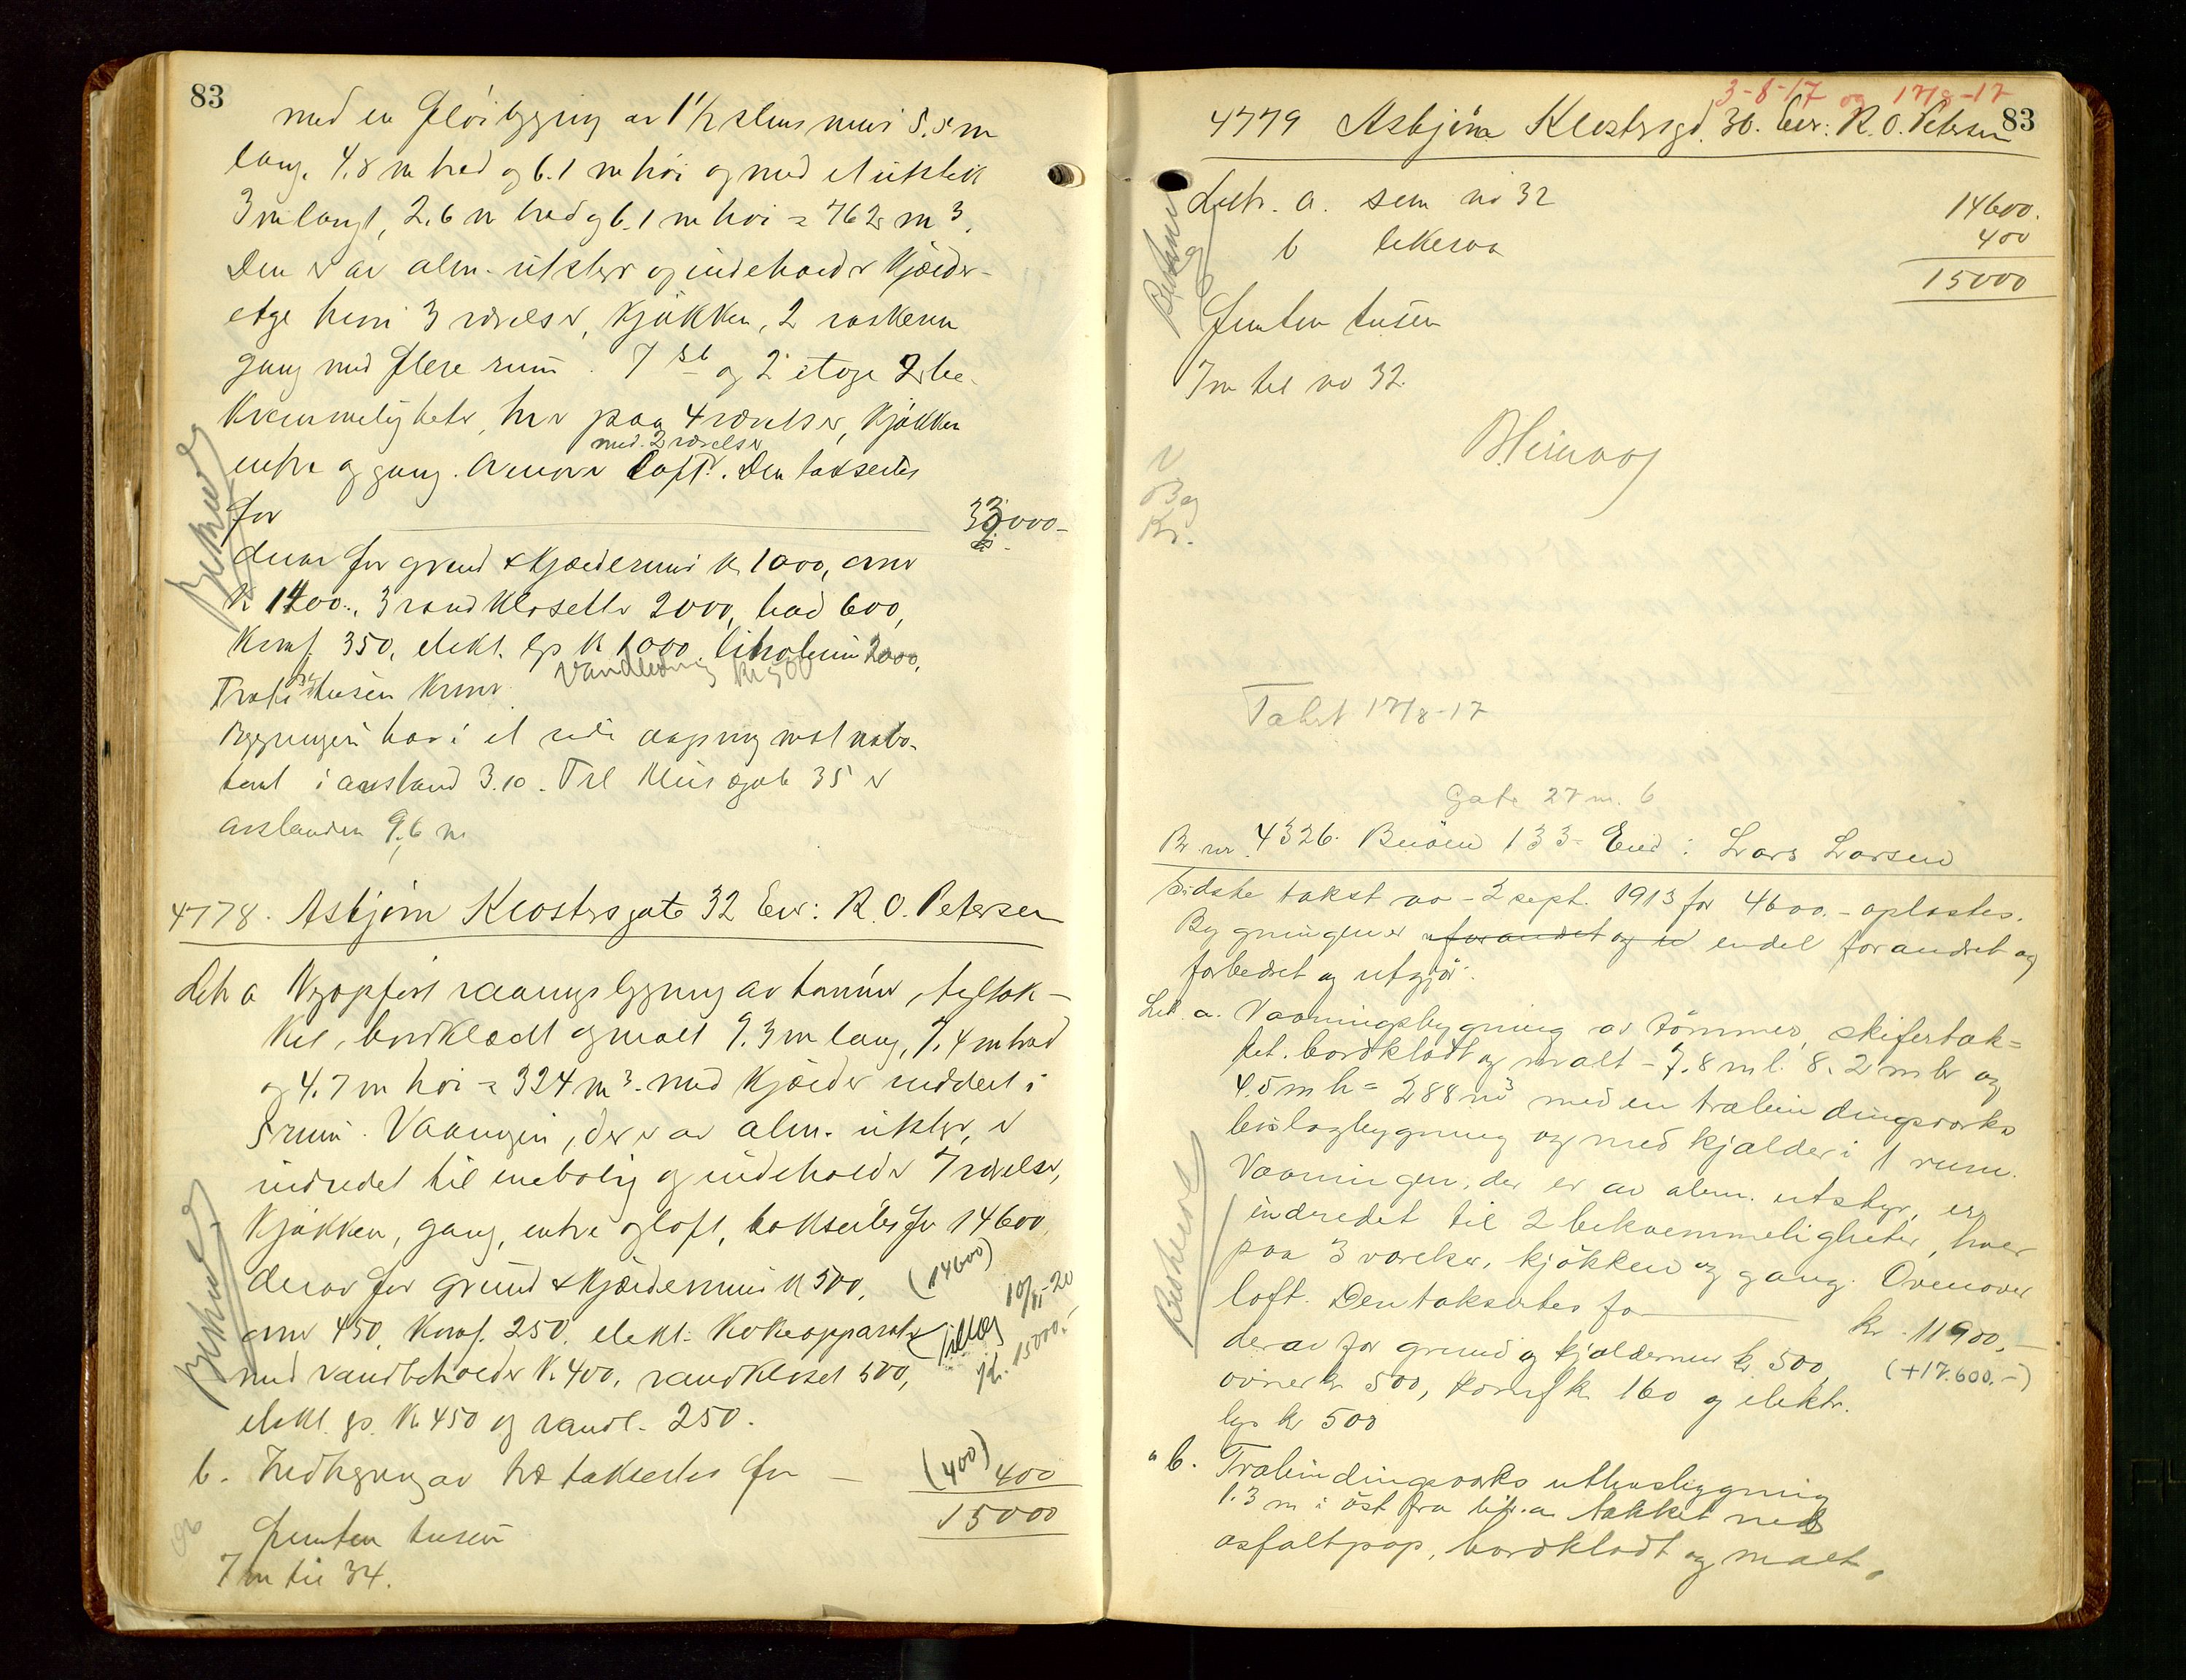 83
med en Fløibygning av 1 1/2 stens mur 5.5 m
lang, 4.8 m bred og 6.1 m høi og med et utstik
3 m langt, 2.6 m bred og 6.1 m høi = 762 m³.
Den er av alm. utstyr og indeholder Kjælder-
etge hvori 3 værelser, Kjøkken, 2 vaskerum
gang med flere rum. 1ste og 2 etage 2 be-
kvemmeligheter, hver paa 4 værelser, Kjøkken
med 2 værelser
entre og gang. Ovenover Loft. Den takseres
for 33000-
derav for grund & Kjældermur kr 1000, ovner
kr 1400, 3 vandklosetter 2000, bad 600,
Komf. 350, elekt. lys kr 1000, linoleum 2000,
Vandledning kr 500
tusen Kroner.
Bygningen har i et rede aapning mot nabo-
tomt i avstand 3.10. Til gate 35 er
avstanden 9.6 m
4778. Asbjørn Klostersgate 32 Eier: R. O. Petersen
Litr a Nyopført vaaningsbygning av tømmer, tegltak-
ket, bordklædt og malt 9.3 m lang, 7.4 m bred
og 4.7 m høi = 324 m³. med Kjælder inddelt i
5 rum. Vaaningen, der er av alm. utstyr, er
indredet til enebolig og indeholder 7 værelser,
Kjøkken, gang, entre og loft, takseres for 14600
derav for grund & Kjældermur kr 500, (14600)
ovner 450, Komf. 250, elekt. Kokeapparater
Tillæg 10/11-20
kr. 15000.-
med vandbeholder kr. 400, vandkloset 500,
elekt. lys. kr 450 og vandl. 250.
b. Vedbygning av træ takseres for - (400) 400
15000
femten tusen
7 m til 34.
3-8-17 og 17/8-17
83
4779 Asbjørn Klostersgd. 30. Eier: R. O. Petersen
Litr. a. som no 32 14600.
b likesaa 400
15000
Femten tusen
7 m til no 32.
B og
Kr.
Takst 17/8-17
Gate 27 m. b
Br. nr. 4326. Buøen 133 - Eier: Lars Larsen
Sidste takst av - 2 sept. 1913 for 4600.- oplæstes.
Bygningen er uforandret og er endel forandret og
forbedret og utgjør:
Lit. a. Vaaningsbygning av tømmer, skifertak=
ket. bordklædt og malt - 7.8 m l. 8.2 m br og
4.5 m h = 288 m³ med en træbindingsverks
bislagbygning og med kjælder i 1 rum.
Vaaningen, der er av alm. utstyr, er
indredet til 2 bekvemmeligheter, hver
paa 3 værelser, kjøkken og gang. Ovenover
loft. Den takseres for kr. 11900,-
derav for grund og kjældermur kr. 500, (+17.600.-)
ovner kr 500, komf kr 160 og elektr.
lys kr 500
" b. Træbindingsverks uthusbygning
1.3 m i øst fra litr. a. takket med
asfaltpap, bordklædt og malt,